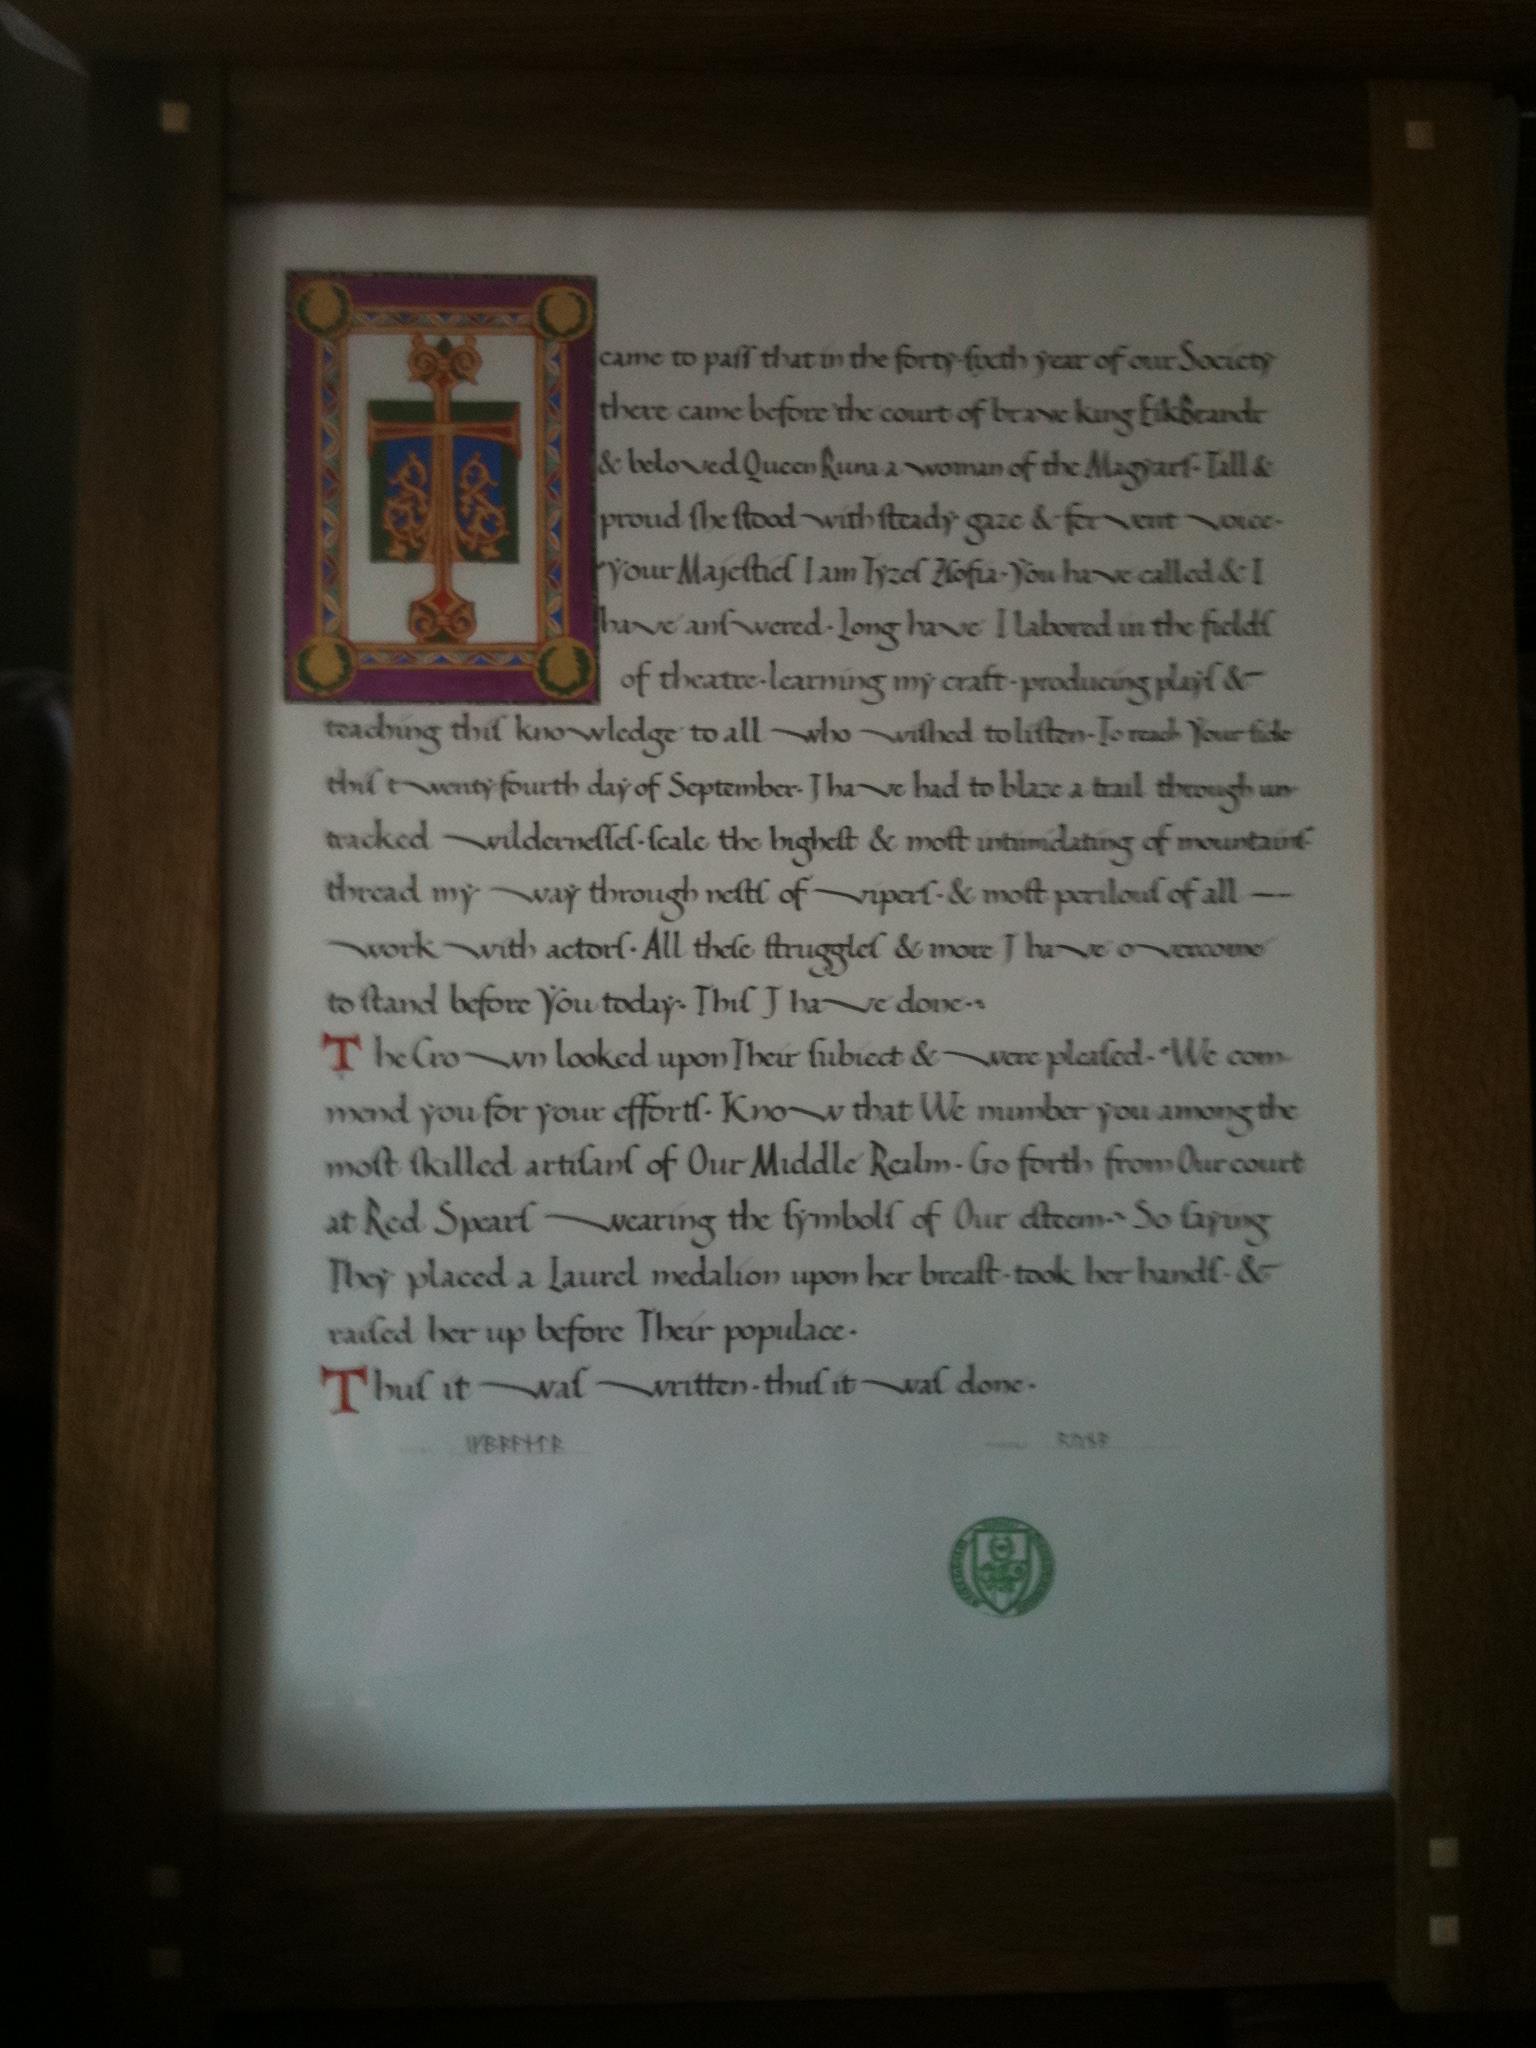 IT came to paſſ that in the forty-ſixth year of our Society
there came before the court of brave king EikBrandr
& beloved Queen Runa a woman of the Magyarſ· Tall &
proud ſhe ſtood with ſteady gaze & fervent voice·
"Your Majeſtieſ I am Tyzeſ Zſofia· You have called & I
have anſwered· Long have I labored in the fieldſ
of theatre· learning my craft· producing playſ &
teaching thiſ knowledge to all who wiſhed to liſten· To reach Your ſide
thiſ twenty-fourth day of September· I have had to blaze a trail through un-
tracked wilderneſſeſ· ſcale the higheſt & moſt intimidating of mountainſ·
thread my way through neſtſ of viperſ· & moſt perilouſ of all —
work with actorſ· All theſe ſtruggleſ & more I have overcome
to ſtand before You today· Thiſ I have done·"
The Crown looked upon Their ſubject & were pleaſed· "We com-
mend you for your effortſ· Know that We number you among the
moſt ſkilled artiſanſ of Our Middle Realm· Go forth from Our court
at Red Spearſ wearing the ſymbolſ of Our eſteem·" So ſaying
They placed a Laurel medalion upon her breaſt· took her handſ· &
raiſed her up before Their populace·
Thuſ it waſ written· thuſ it waſ done·
ᚱᚢᚾᚨ